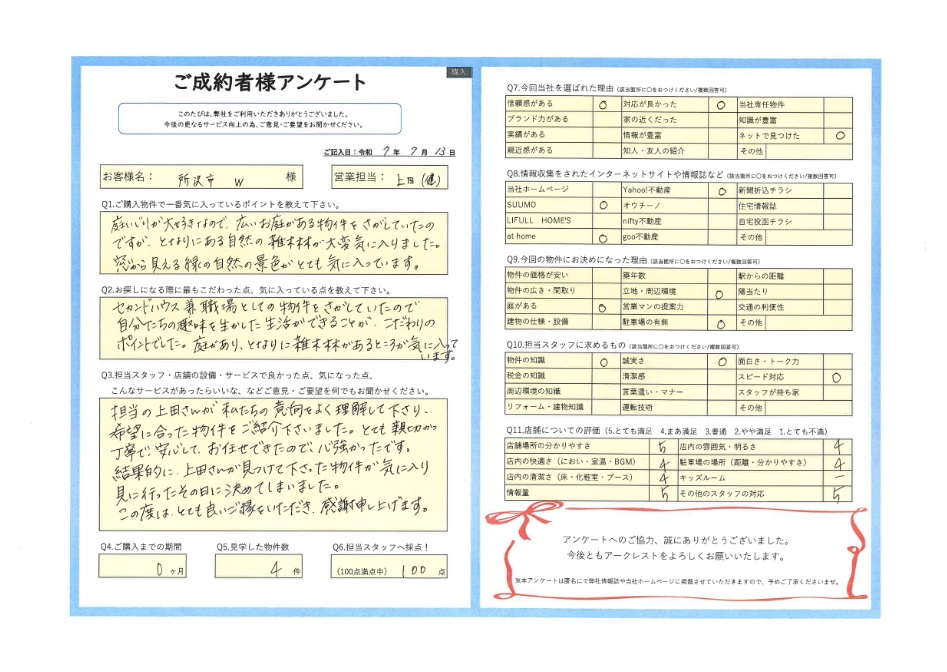 購入
ご成約者様アンケート
このたびは、弊社をご利用いただきありがとうございました。
今後の更なるサービス向上の為、ご意見・ご要望をお聞かせください。
ご記入日：令和 7 年 7 月 13 日
お客様名： 所沢市 W 様
営業担当： 上田(健)
Q1.ご購入物件で一番気に入っているポイントを教えて下さい。
庭いじりが大好きなので、広いお庭がある物件をさがしていたの
ですが、となりにある自然の雑木林が大変気に入りました。
窓から見える緑の自然の景色がとても気に入っています。
Q2.お探しになる際に最もこだわった点、気に入っている点を教えて下さい。
セカンドハウス兼職場としての物件をさがしていたので
自分たちの趣味を生かした生活ができることが、こだわりの
ポイントでした。庭があり、となりに雑木林があるところが気に入って
います。
Q3.担当スタッフ・店舗の設備・サービスで良かった点、気になった点、
こんなサービスがあったらいいな、などご意見・ご要望を何でもお聞かせください。
担当の上田さんが私たちの意向をよく理解して下さり、
希望に合った物件をご紹介下さいました。とても親切かつ
丁寧で、安心して、お任せできたので、心強かったです。
結果的に、上田さんが見つけて下さった物件が気に入り
見に行ったその日に決めてしまいました。
この度は、とても良いご縁をいただき、感謝申し上げます。
Q4.ご購入までの期間
0 ヶ月
Q5.見学した物件数
4 件
Q6.担当スタッフへ採点！
(100点満点中) 100 点
Q7.今回当社を選ばれた理由 (該当箇所に〇をおつけください/複数回答可)
信頼感がある ○ 対応が良かった ○ 当社専任物件
ブランド力がある 家の近くだった 知識が豊富
実績がある 情報が豊富 ネットで見つけた ○
親近感がある 知人・友人の紹介 その他
Q8.情報収集をされたインターネットサイトや情報誌など (該当箇所に〇をおつけください/複数回答可)
当社ホームページ Yahoo!不動産 ○ 新聞折込チラシ
SUUMO ○ オウチーノ 住宅情報誌
LIFULL HOME'S nifty不動産 自宅投函チラシ
at home ○ goo不動産 その他
Q9.今回の物件にお決めになった理由 (該当箇所に〇をおつけください/複数回答可)
物件の価格が安い 築年数 駅からの距離
物件の広さ・間取り 立地・周辺環境 ○ 陽当たり
庭がある ○ 営業マンの提案力 交通の利便性
建物の仕様・設備 駐車場の有無 ○ その他
Q10.担当スタッフに求めるもの (該当箇所に〇をおつけください/複数回答可)
物件の知識 ○ 誠実さ ○ 面白さ・トーク力
税金の知識 清潔感 スピード対応 ○
周辺環境の知識 言葉遣い・マナー スタッフが持ち家
リフォーム・建物知識 運転技術 その他
Q11.店舗についての評価 (5.とても満足 4.まあ満足 3.普通 2.やや満足 1.とても不満)
店舗場所の分かりやすさ 5 店内の雰囲気・明るさ 4
店内の快適さ（におい・室温・BGM） 4 駐車場の場所（距離・分かりやすさ） 4
店内の清潔さ（床・化粧室・ブース） 4 キッズルーム －
情報量 5 その他のスタッフの対応 5
アンケートへのご協力、誠にありがとうございました。
今後ともアークレストをよろしくお願いいたします。
※本アンケートは匿名にて弊社情報誌や当社ホームページに掲載させていただきますので、予めご了承くださいませ。